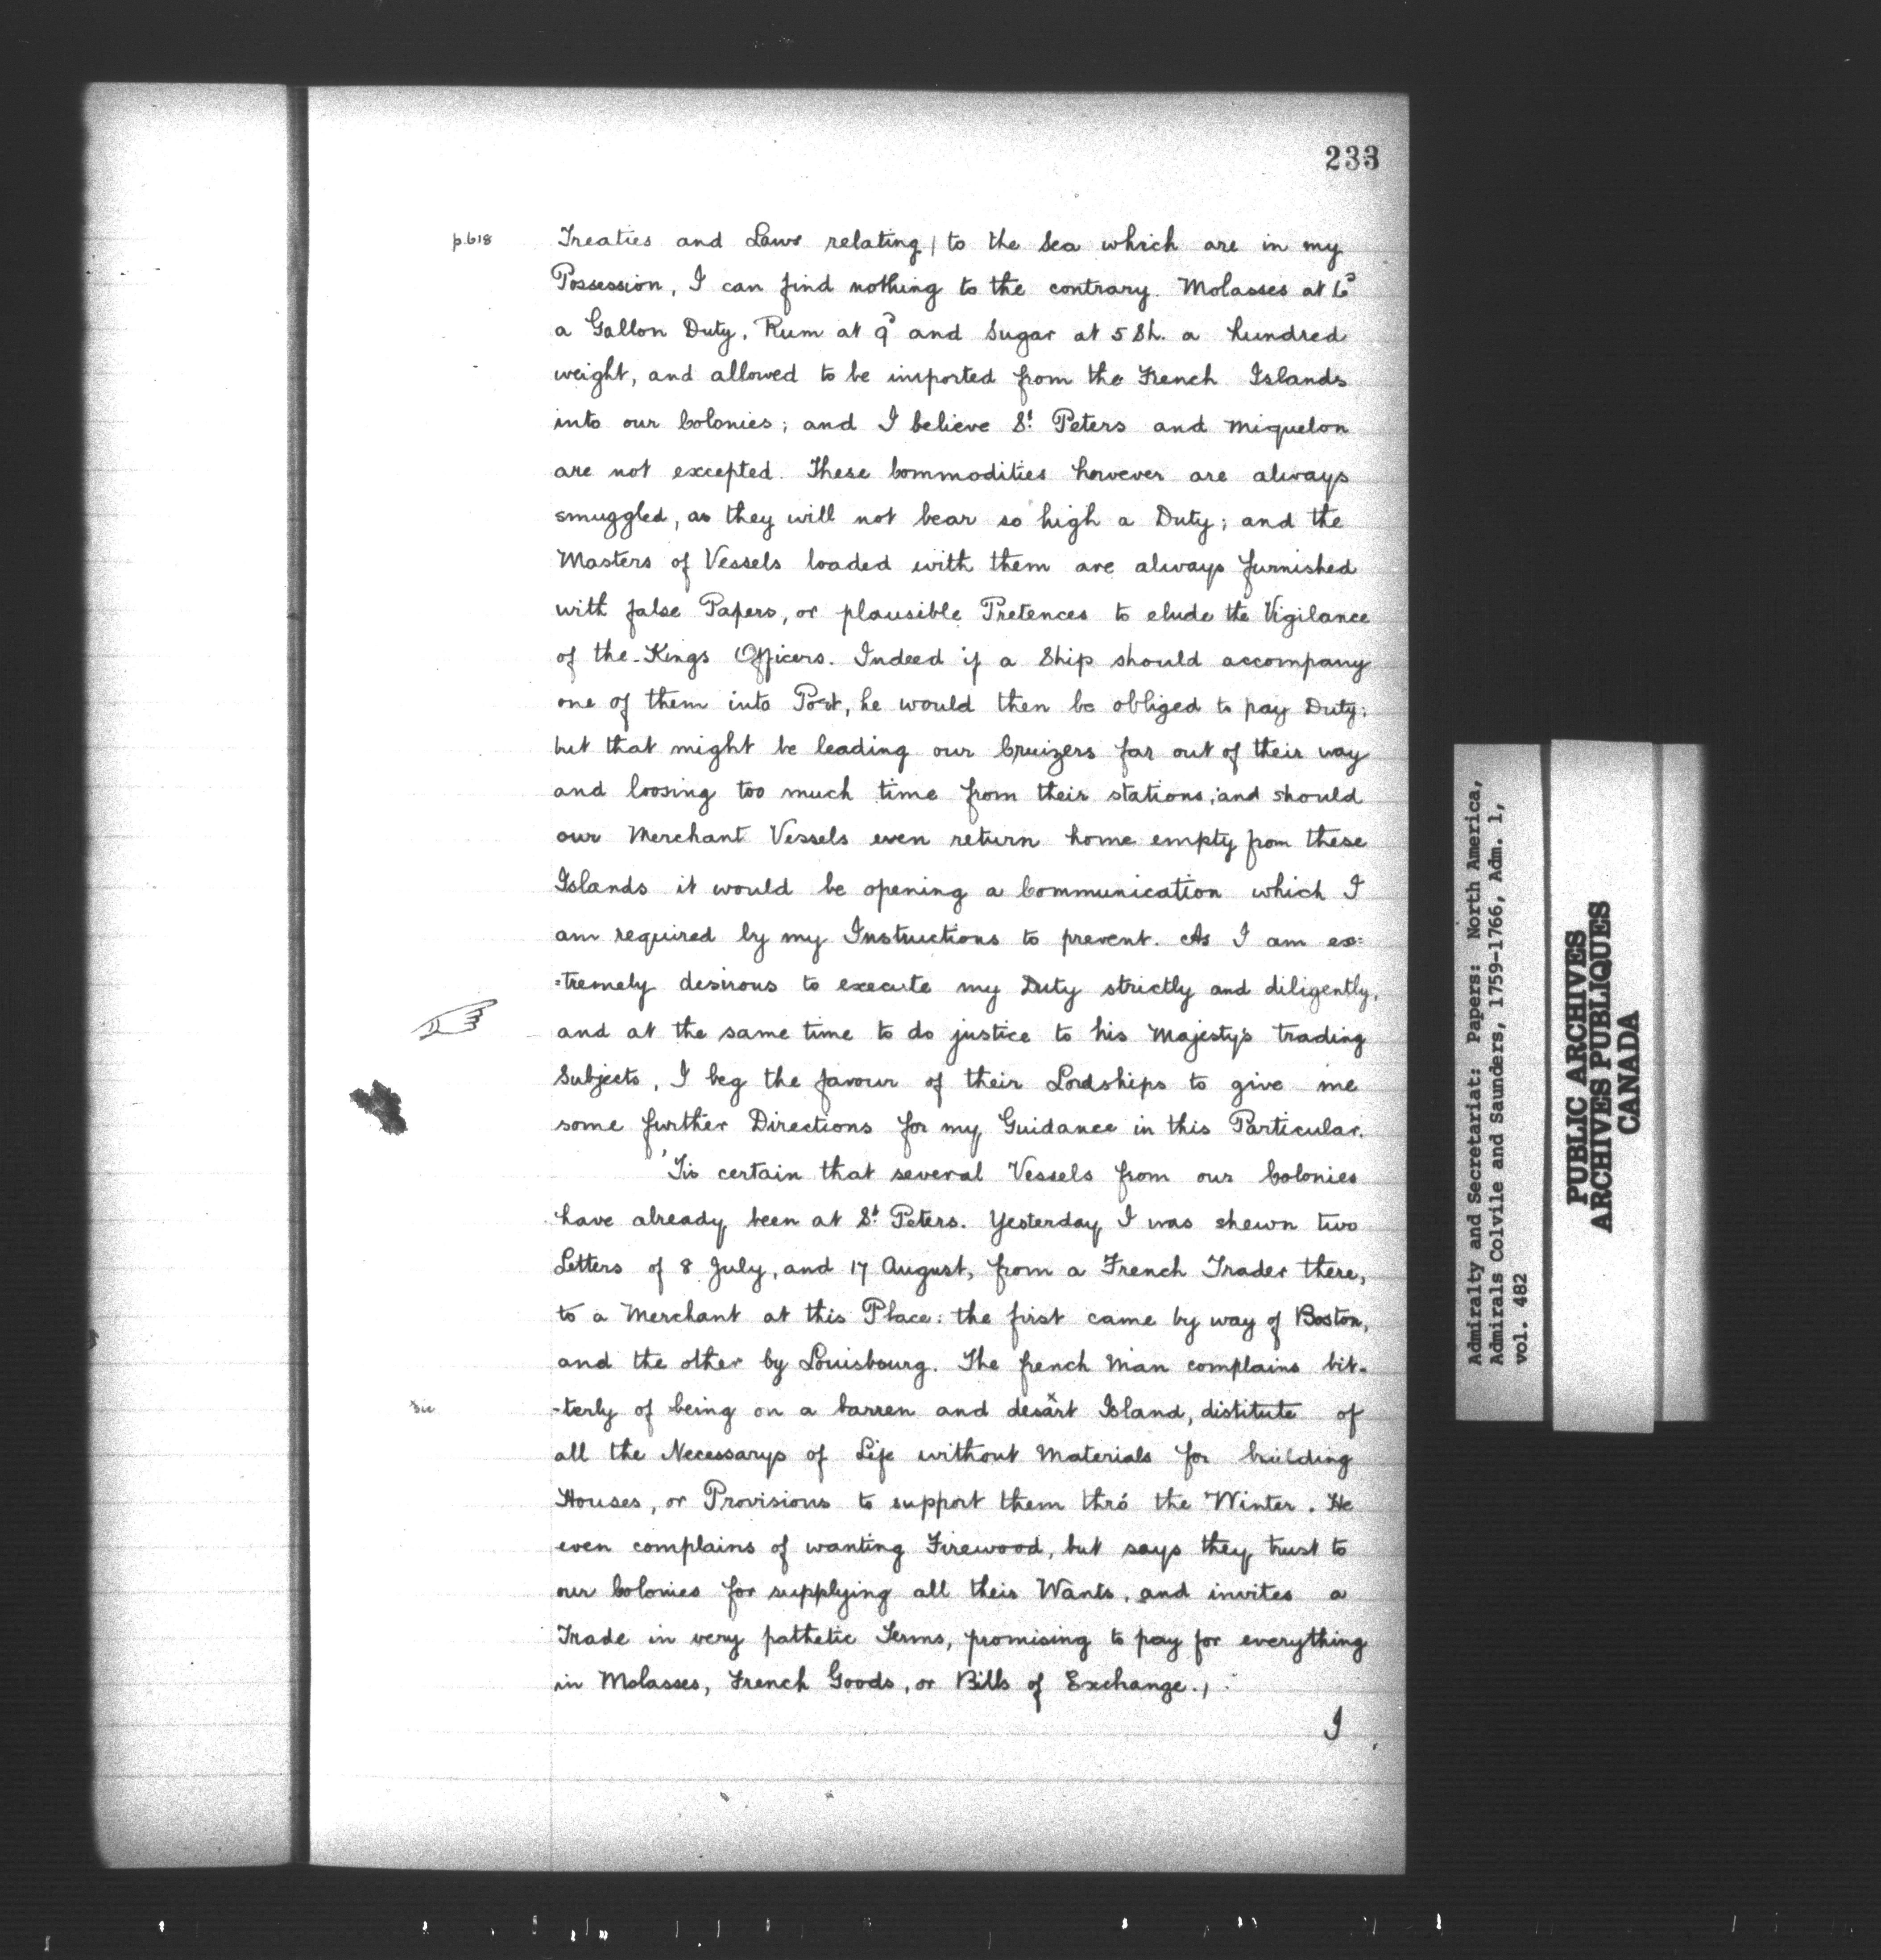 233
p.618
Treaties and Laws relating / to the Sea which are in my
Possession, I can find nothing to the contrary. Molasses at 6d
a Gallon Duty, Rum at 9d and Sugar at 5 Sh. a hundred
weight, and allowed to be imported from the French Islands
into our Colonies; and I believe St Peters and Miquelon
are not excepted. These Commodities however are always
smuggled, as they will not bear so high a Duty; and the
Masters of Vessels loaded with them are always furnished
with false Papers, or plausible Pretences to elude the Vigilance
of the Kings Officers. Indeed if a Ship should accompany
one of them into Port, he would then be obliged to pay Duty;
but that might be leading our Cruizers far out of their way
and loosing too much time from their stations; and should
our Merchant Vessels even return home empty from these
Islands it would be opening a Communication which I
am required by my Instructions to prevent. As I am ex=
=tremely desirous to execute my Duty strictly and diligently,
and at the same time to do justice to his Majesty's trading
Subjects, I beg the favour of their Lordships to give me
some further Directions for my Guidance in this Particular.
'Tis certain that several Vessels from our Colonies
have already been at St Peters. Yesterday I was shewn two
Letters of 8 July, and 17 August, from a French Trader there,
to a Merchant at this Place: the first came by way of Boston,
and the other by Louisbourg. The french Man complains bit-
sic
-terly of being on a barren and desart x Island, distitute of
all the Necessarys of Life without Materials for building
Houses, or Provisions to support them thro' the Winter. He
even complains of wanting Firewood, but says they trust to
our Colonies for supplying all their Wants, and invites a
Trade in very pathetic Terms, promising to pay for everything
in Molasses, French Goods, or Bills of Exchange. /
I
Admiralty and Secretariat: Papers: North America,
Admirals Colvile and Saunders, 1759-1766, Adm. 1,
vol. 482
PUBLIC ARCHIVES
ARCHIVES PUBLIQUES
CANADA